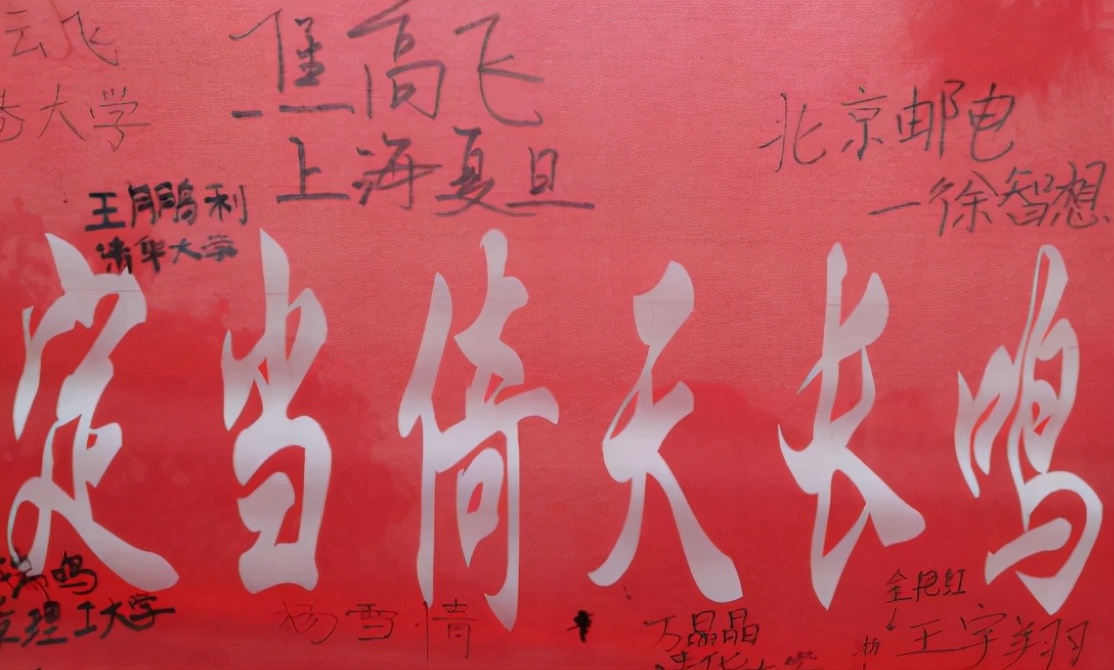 云飞
大学
焦高飞
上海夏旦
北京邮电
一徐智想
王鹏利
清华大学
定当倚天长鸣
鸣
理工大学
杨雪情
万晶晶
清华大学
金艳红
王宇翔
浙